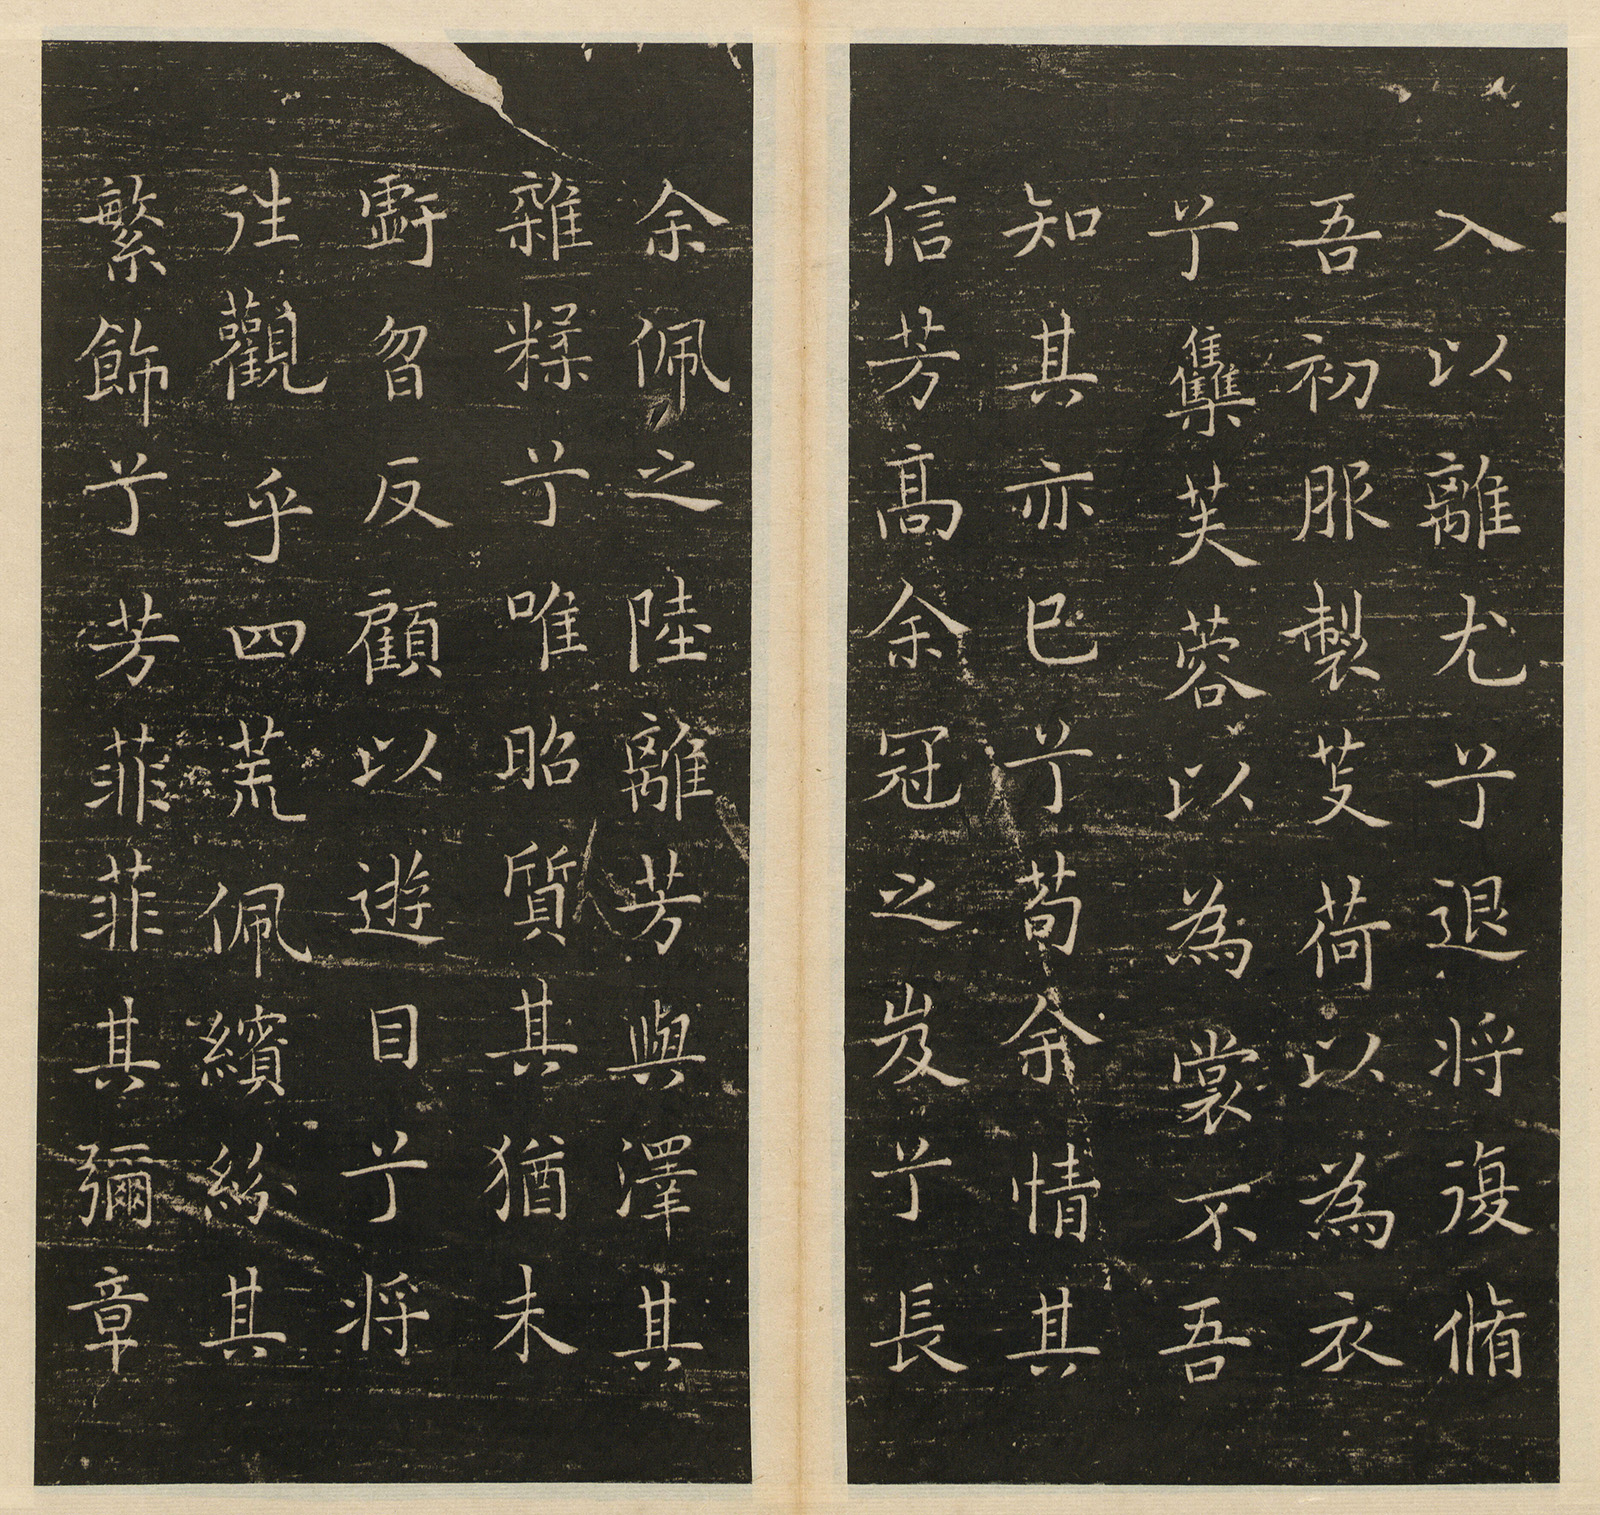 入以離尤兮退将復脩
吾初服製芰荷以為衣
兮雧芙蓉以為裳不吾
知其亦已兮苟余情其
信芳髙余冠之岌兮長
余佩之陸離芳與澤其
雜糅兮唯昭質其猶未
虧曶反顧以遊目兮将
往觀乎四荒佩繽紛其
繁飾兮芳菲菲其彌章